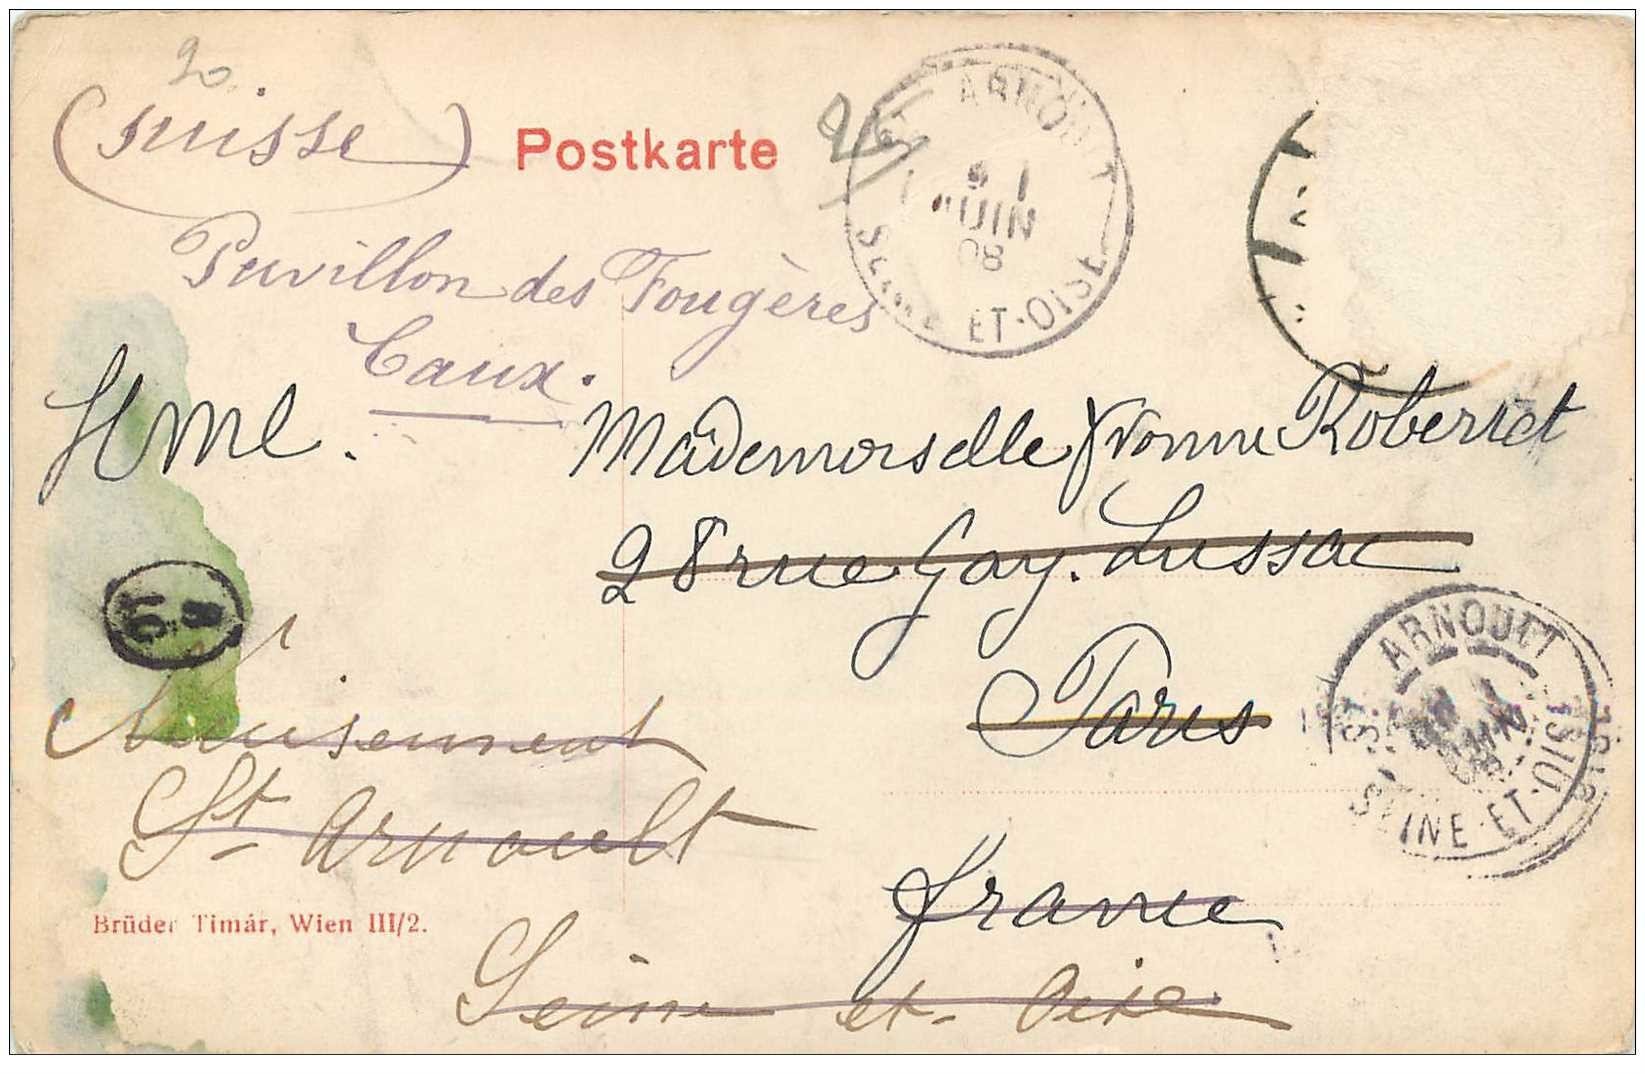 20
(Suisse)
Postkarte
Pavillon des Fougères
Caux.
Mademoiselle Yvonne Robertet
28 rue Gay. Lussac
Paris
St Arnoult
France
Seine et Oise
Brüder Timár, Wien III/2.
ARNOULT
9 1
JUIN
08
SEINE ET-OISE
ST ARNOULT
SEINE-ET-OISE